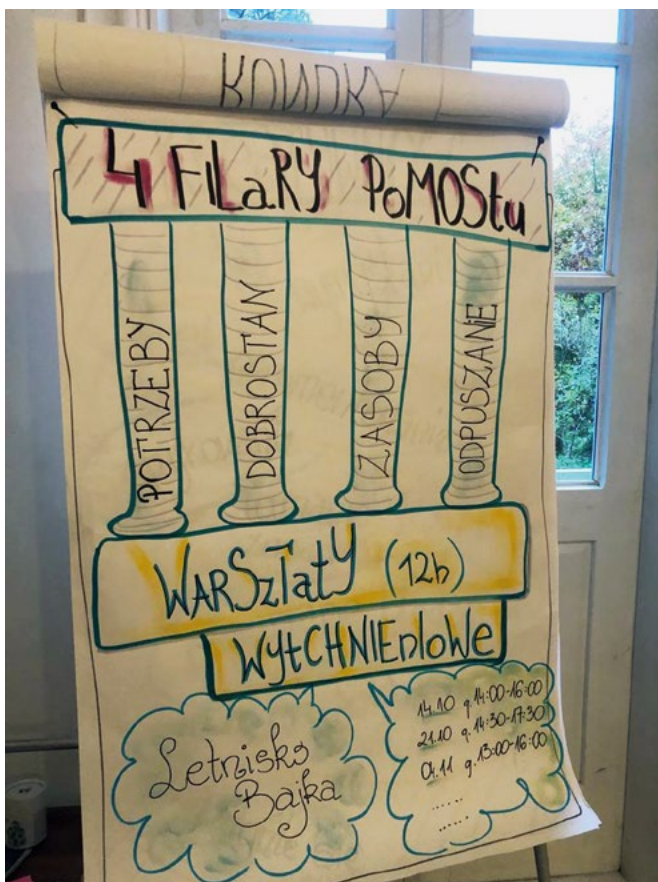 4 FILaRY PoMOStu
POTRZEBY
DOBROSTAN
ZASOBY
ODPUSZANIE
WARSztatY (12h)
WYtCHNIEnIoWe
Letnisko
Bajka
14.10 g.14:00-16:00
21.10 g.14:30-17:30
04.11 g.13:00-16:00
......
......